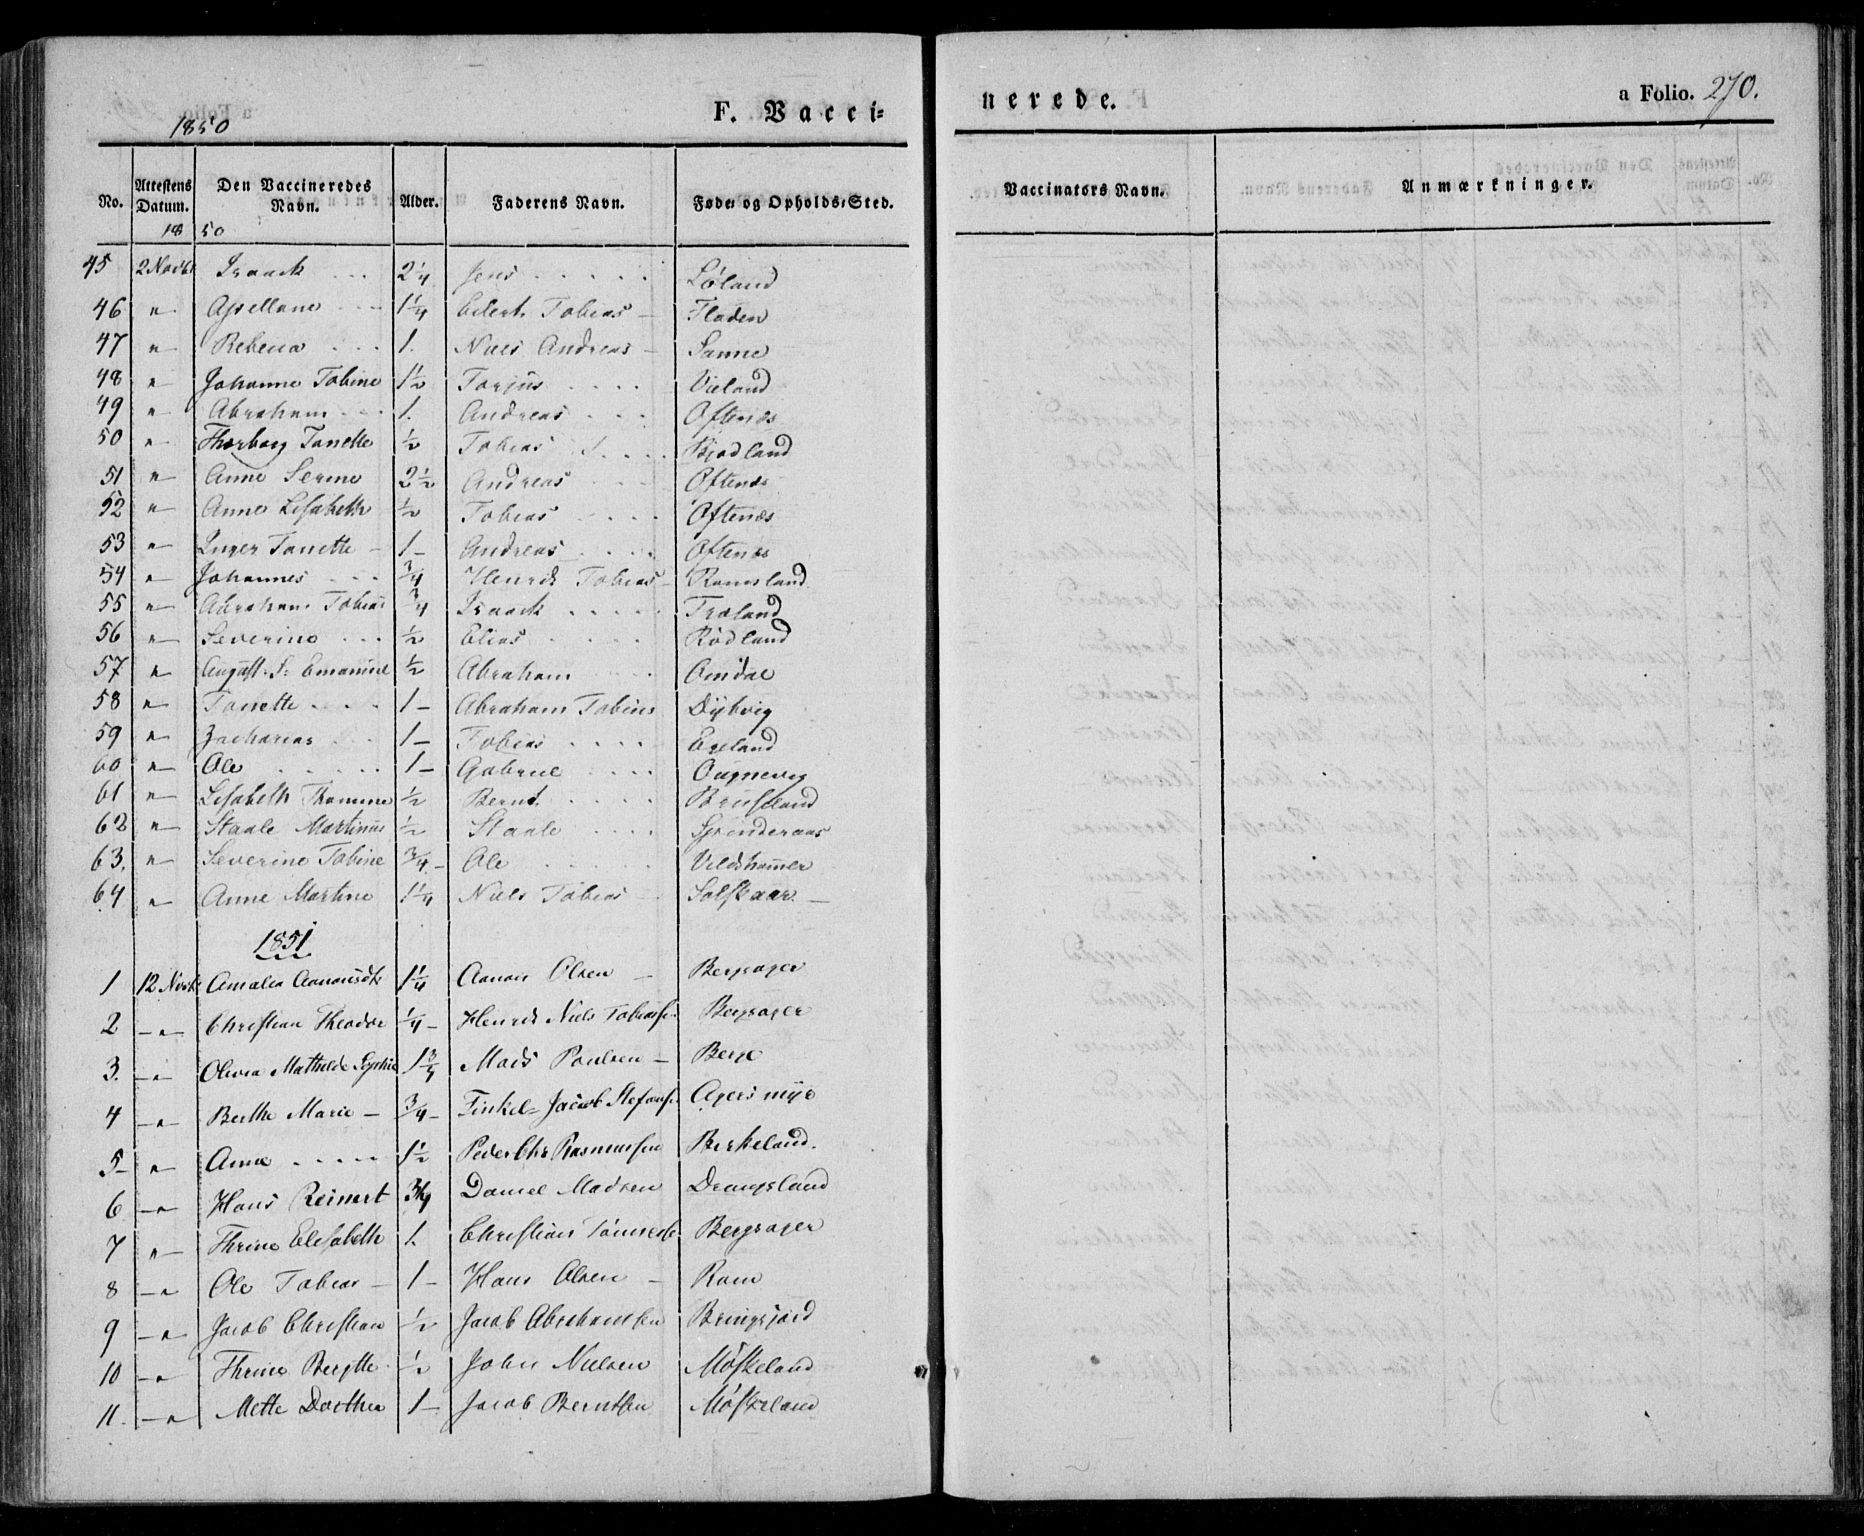 F. Vacci=
nerede.
a Folio. 270.
1850
No. Attestens Datum. Den Vaccineredes Navn. Alder. Faderens Navn. Føde= og Opholds=Sted. Vaccinators Navn. Anmærkninger.
18 50
45 2 Novbr Isaack 2 1/4 Jens Løland
46 " 1 1/4 Eilert Tobias Fladen
47 " Rebecca 1. Niels Andreas Sanne
48 " Johanne Tobine 1 1/2 Torjus Vieland
49 " Abraham 1. Andreas Oftenæs
50 " Thorborg Tonette 1/2 Tobias Bjodland
51 " Anne Serine 2 1/2 Andreas Oftenæs
52 " Anne Lisabeth 1/2 Tobias Oftenæs
53 " Inger Tonette 1 Andreas Oftenæs
54 " Johannes 3/4 Henrik Tobias Ramsland
55 " Abraham Tobias 3/4 Isaack Træland
56 " Severine 1/2 Elias Rødland
57 " August S: Emanuel 1/2 Abraham Omdal
58 " Tonette 1 Abraham Tobias Dybvig
59 " Zacharias 1 Tobias Egeland
60 " Ole 1 Gabriel Ougnevig
61 " Lisabeth Thomine 1/2 Bernt Bruseland
62 " Staale Martinus 1/2 Staale
63. " Severine Tobine 3/4 Ole
64 " Anne Martine 1 1/4 Niels Tobias Solskaar
1851
1 12 Novbr Amalia 1 1/4 Aanon Olsen Bergsager
2 " Christian Theodor 1/4 Henrik Niels Tobiassen Bergsager
3. " Olivia Mathilde Sophie 1 3/4 Mads Poulsen Berge
4 " Berthe Marie 3/4 Tinkel= Jacob Stefansen Agersmyr
5 " Anne 1 1/2 Peder Chr Rasmussen Birkeland.
6 " Hans Reinert 3/4 Daniel Madsen Drangsland
7 " Thrine Elisabeth 1. Christian Tønnesen Bergsager
8 " Ole Tobias 1 Hans Olsen Rom
9 " Jacob Christian 1/2 Jacob Abrahamsen Bringsjord
10 " Thrine Bergitte 1/2 John Nielsen Møskeland
11. " Mette Dorthea 1 Jacob Berntsen Møskeland